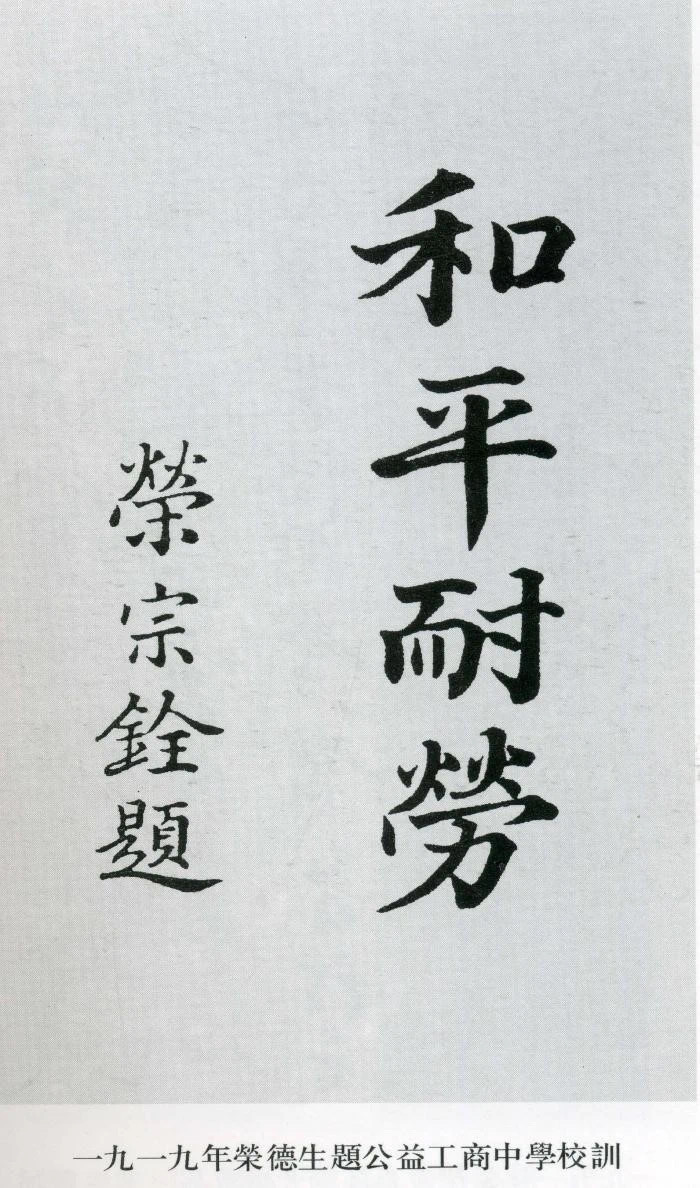 和平耐勞
榮宗銓題
一九一九年榮德生題公益工商中學校訓